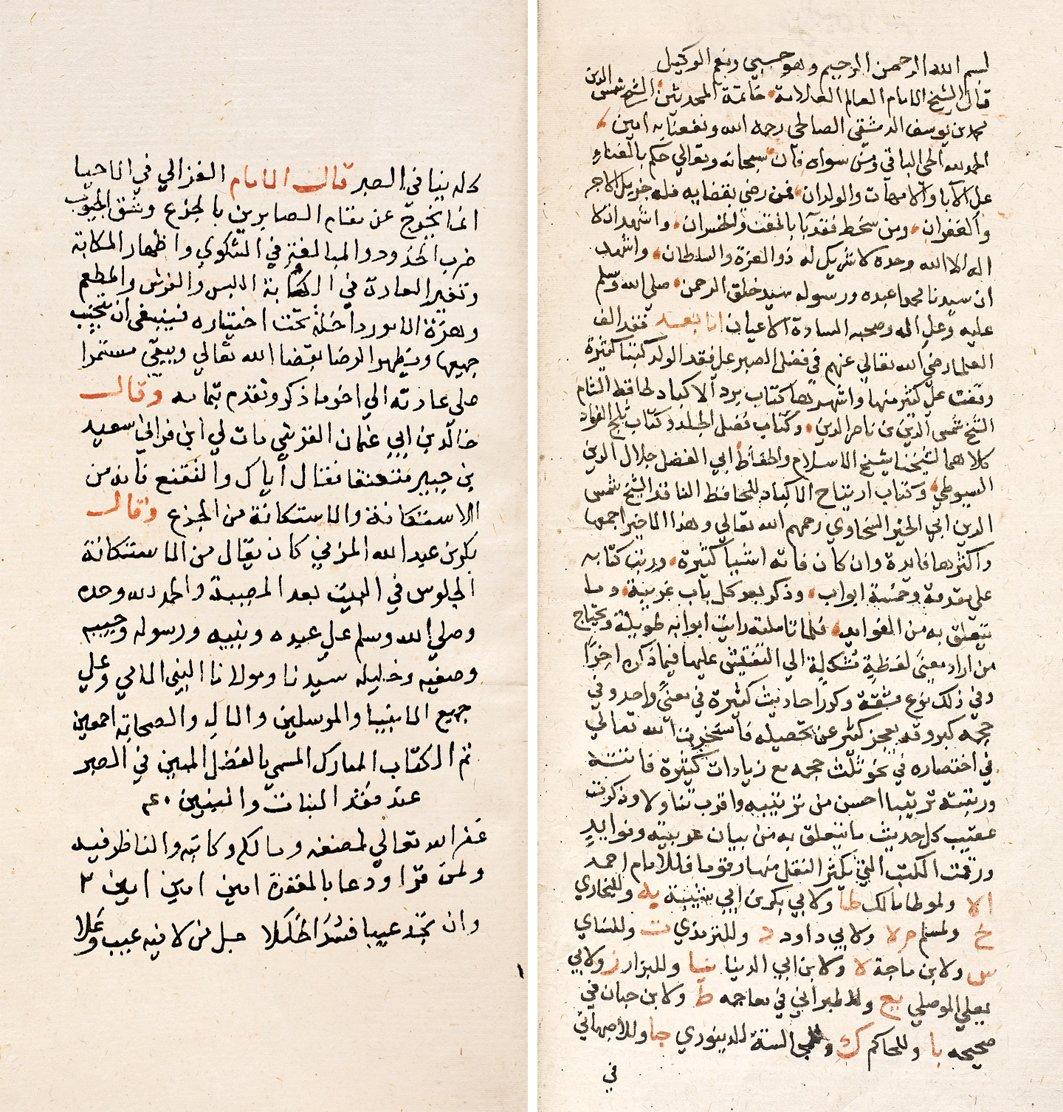 بسم الله الرحمن الرحيم وهو حسبي ونعم الوكيل
قال الشيخ الامام العالم العلامة خاتمة المحدثين الشيخ شمس الدين
محمد بن يوسف الدمشقي الصالحي رحمه الله ونفعنا به امين
الحمد لله الحي الباقي ومن سواه فان سبحانه وتعالي حكم بالفناء
علي الابا والامهات والولدان فمن رضي بقضايه فله جزيل الاجر
والغفران ومن سخط فقد با بالمقت والخسران واشهد ان لا
اله الا الله وحده لا شريك له ذو العزة والسلطان واشهد
ان سيدنا محمدا عبده ورسوله سيد خلق الرحمن صلي الله وسلم
عليه وعلي اله وصحبه السادة الاعيان اما بعد فقد الف
العلما رضي الله تعالي عنهم في فضل الصبر علي فقد الولد كتبا كثيرة
وقفت علي كثير منها واشهرها كتاب برد الاكباد لحافظ الشام
الشيخ شمس الدين بن ناصر الدين وكتاب فضل الجلد وكتاب ثلج الفواد
كلاهما لشيخنا شيخ الاسلام والحفاظ ابي الفضل جلال الدين
السيوطي وكتاب ارتياح الاكباد للحافظ الناقد الشيخ شمس
الدين ابي الخير السخاوي رحمهم الله تعالي وهذا الاخير اجمعها
واكثرها فايدة وان كان فاته اشيا كثيرة ورتب كتابه
علي مقدمة وخمسة ابواب وذكر بعد كل باب غريبه وما
يتعلق به من الفوايد فلما تاملته رايت ابوابه طويلة ويحتاج
من اراد معني لفظة مشكلة الي التفتيش عليها فيما ذكره اخرا
وفي ذلك نوع مشقة وكرر احاديث كثيرة في معني واحد وفي
حجمه كبر وقد يعجز كثير عن تحصيله فاستخرت الله تعالي
في اختصاره في نحو ثلث حجمه مع زيادات كثيرة فاتته
ورتبته ترتيبا احسن من ترتيبه واقرب تناولا وذكرت
عقيب كل حديث ما يتعلق به من بيان غريبه وفوايده
ورقمت الكتب التي نكثر النقل منها رقوما فللامام احمد
الا ولموطا مالك طا ولابي بكر بن ابي شيبة به وللبخاري
خ ولمسلم م لا ولابي داود د وللترمذي ت وللنساي
س ولابن ماجة لا ولابن ابي الدنيا نيا وللبزار ز ولابي
يعلي الموصلي يع وللطبراني في معاجمه ط ولابن حبان في
صحيحه با وللحاكم ك السنة للدينوري جا وللاصبهاني
في
لانه ينافي الصبر قال الامام الغزالي في الاحيا
انما يخرج عن مقام الصابرين بالجزع وشق الجيوب
ضرب الخدود والمبالغة في الشكوي واظهار الكابة
وتغير العادة في الملبس والفرش والمطعم
وهذه الامور داخلة تحت اختياره فينبغي ان يجتنب
جميعها ويظهر الرضا بقضا الله تعالي ويبقي مستمرا
علي عادته الي اخر ما ذكر وتقدم بتمامه وقال
خالد بن ابي عثمان القرشي مات لي ابن فراني سعيد
بن جبير متقنعا فقال اياك والتقنع فانه من
الاستكانة والاستكانة من الجزع وقال
بكر بن عبد الله المزني كان يقال من الاستكانة
الجلوس في البيت بعد المصيبة والحمد لله وحده
وصلي الله وسلم علي عبده ونبيه ورسوله وحبيبه
وصفيه وخليله سيدنا ومولانا النبي الامي وعلي
جميع الانبيا والمرسلين والال والصحابة اجمعين
تم الكتاب المبارك المسمي بالفضل المبين في الصبر
عند فقد البنات والبنين
غفر الله تعالي لمصنفه ومالكه وكاتبه والناظر فيه
ولمن قرا ودعا بالمغفرة امين امين امين ٢
وان تجد عيبا فسد الخللا جل من لا فيه عيب وعلا